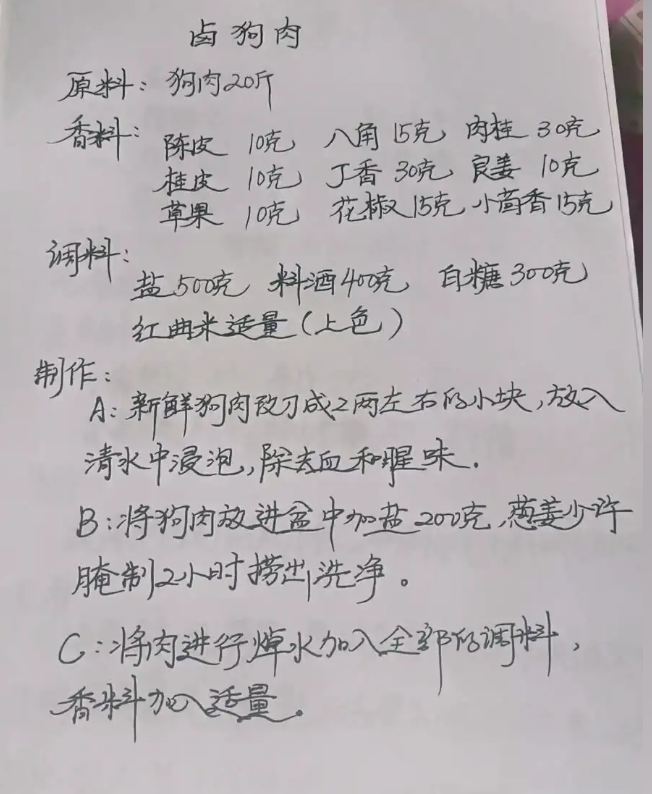 卤狗肉
原料：狗肉20斤
香料：陈皮 10克 八角 15克 肉桂 30克
桂皮 10克 丁香 30克 良姜 10克
草果 10克 花椒 15克 小茴香 15克
调料：
盐500克 料酒400克 白糖300克
红曲米适量（上色）
制作：
A：新鲜狗肉改刀成2两左右的小块，放入
清水中浸泡，除去血和腥味．
B：将狗肉放进盆中加盐200克，葱姜少许
腌制2小时捞出洗净。
C：将肉进行焯水加入全部的调料，
香料加入适量。